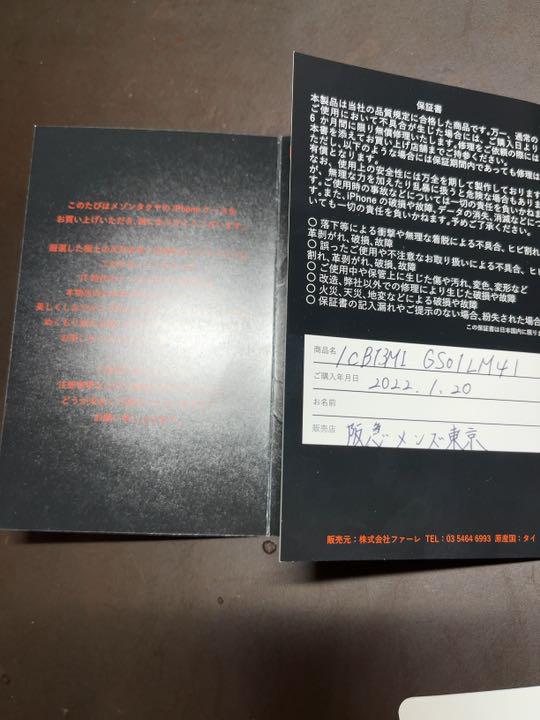 このたびはメゾンタクヤの iPhone ケースを
お買い上げいただき、誠にありがとうございます。
保証書
本製品は当社の品質規定に合格した商品です。万一、通常の
ご使用において不具合が生じた場合には、ご購入日より
6 か月間に限り無償修理いたします。修理をご依頼の際には
本書を添えてお買い上げ店舗までご持参ください。
ただし、以下のような場合には保証期間内であっても修理は
有償となります。
なお、使用上の安全性には万全を期して製作しております
が、無理な力を加えたり乱暴に扱うと危険な場合もありま
す。ご使用時の事故などについては一切の責任を負いかねま
す。また、iPhone の破損や故障、データの消失、消滅などにつ
いても一切の責任を負いかねます。予めご了承ください。
○ 落下等による衝撃や無理な着脱による不具合、ヒビ割れ
革剥がれ、破損、故障
○ 誤ったご使用や不注意なお取り扱いによる不具合、ヒ
割れ、革剥がれ、破損、故障
○ ご使用中や保管上に生じた傷や汚れ、変色、変形など
○ 改造、弊社以外での修理により生じた破損や故障
○ 火災、天災、地変などによる破損や故障
○ 保証書の記入漏れやご提示のない場合、紛失された場合
この保証書は日本国内に限り
商品名 1CB13MI GS01LM41
ご購入年月日 2022.1.20
お名前
販売店 阪急メンズ東京
販売元：株式会社ファーレ TEL：03 5464 6993 原産国：タイ